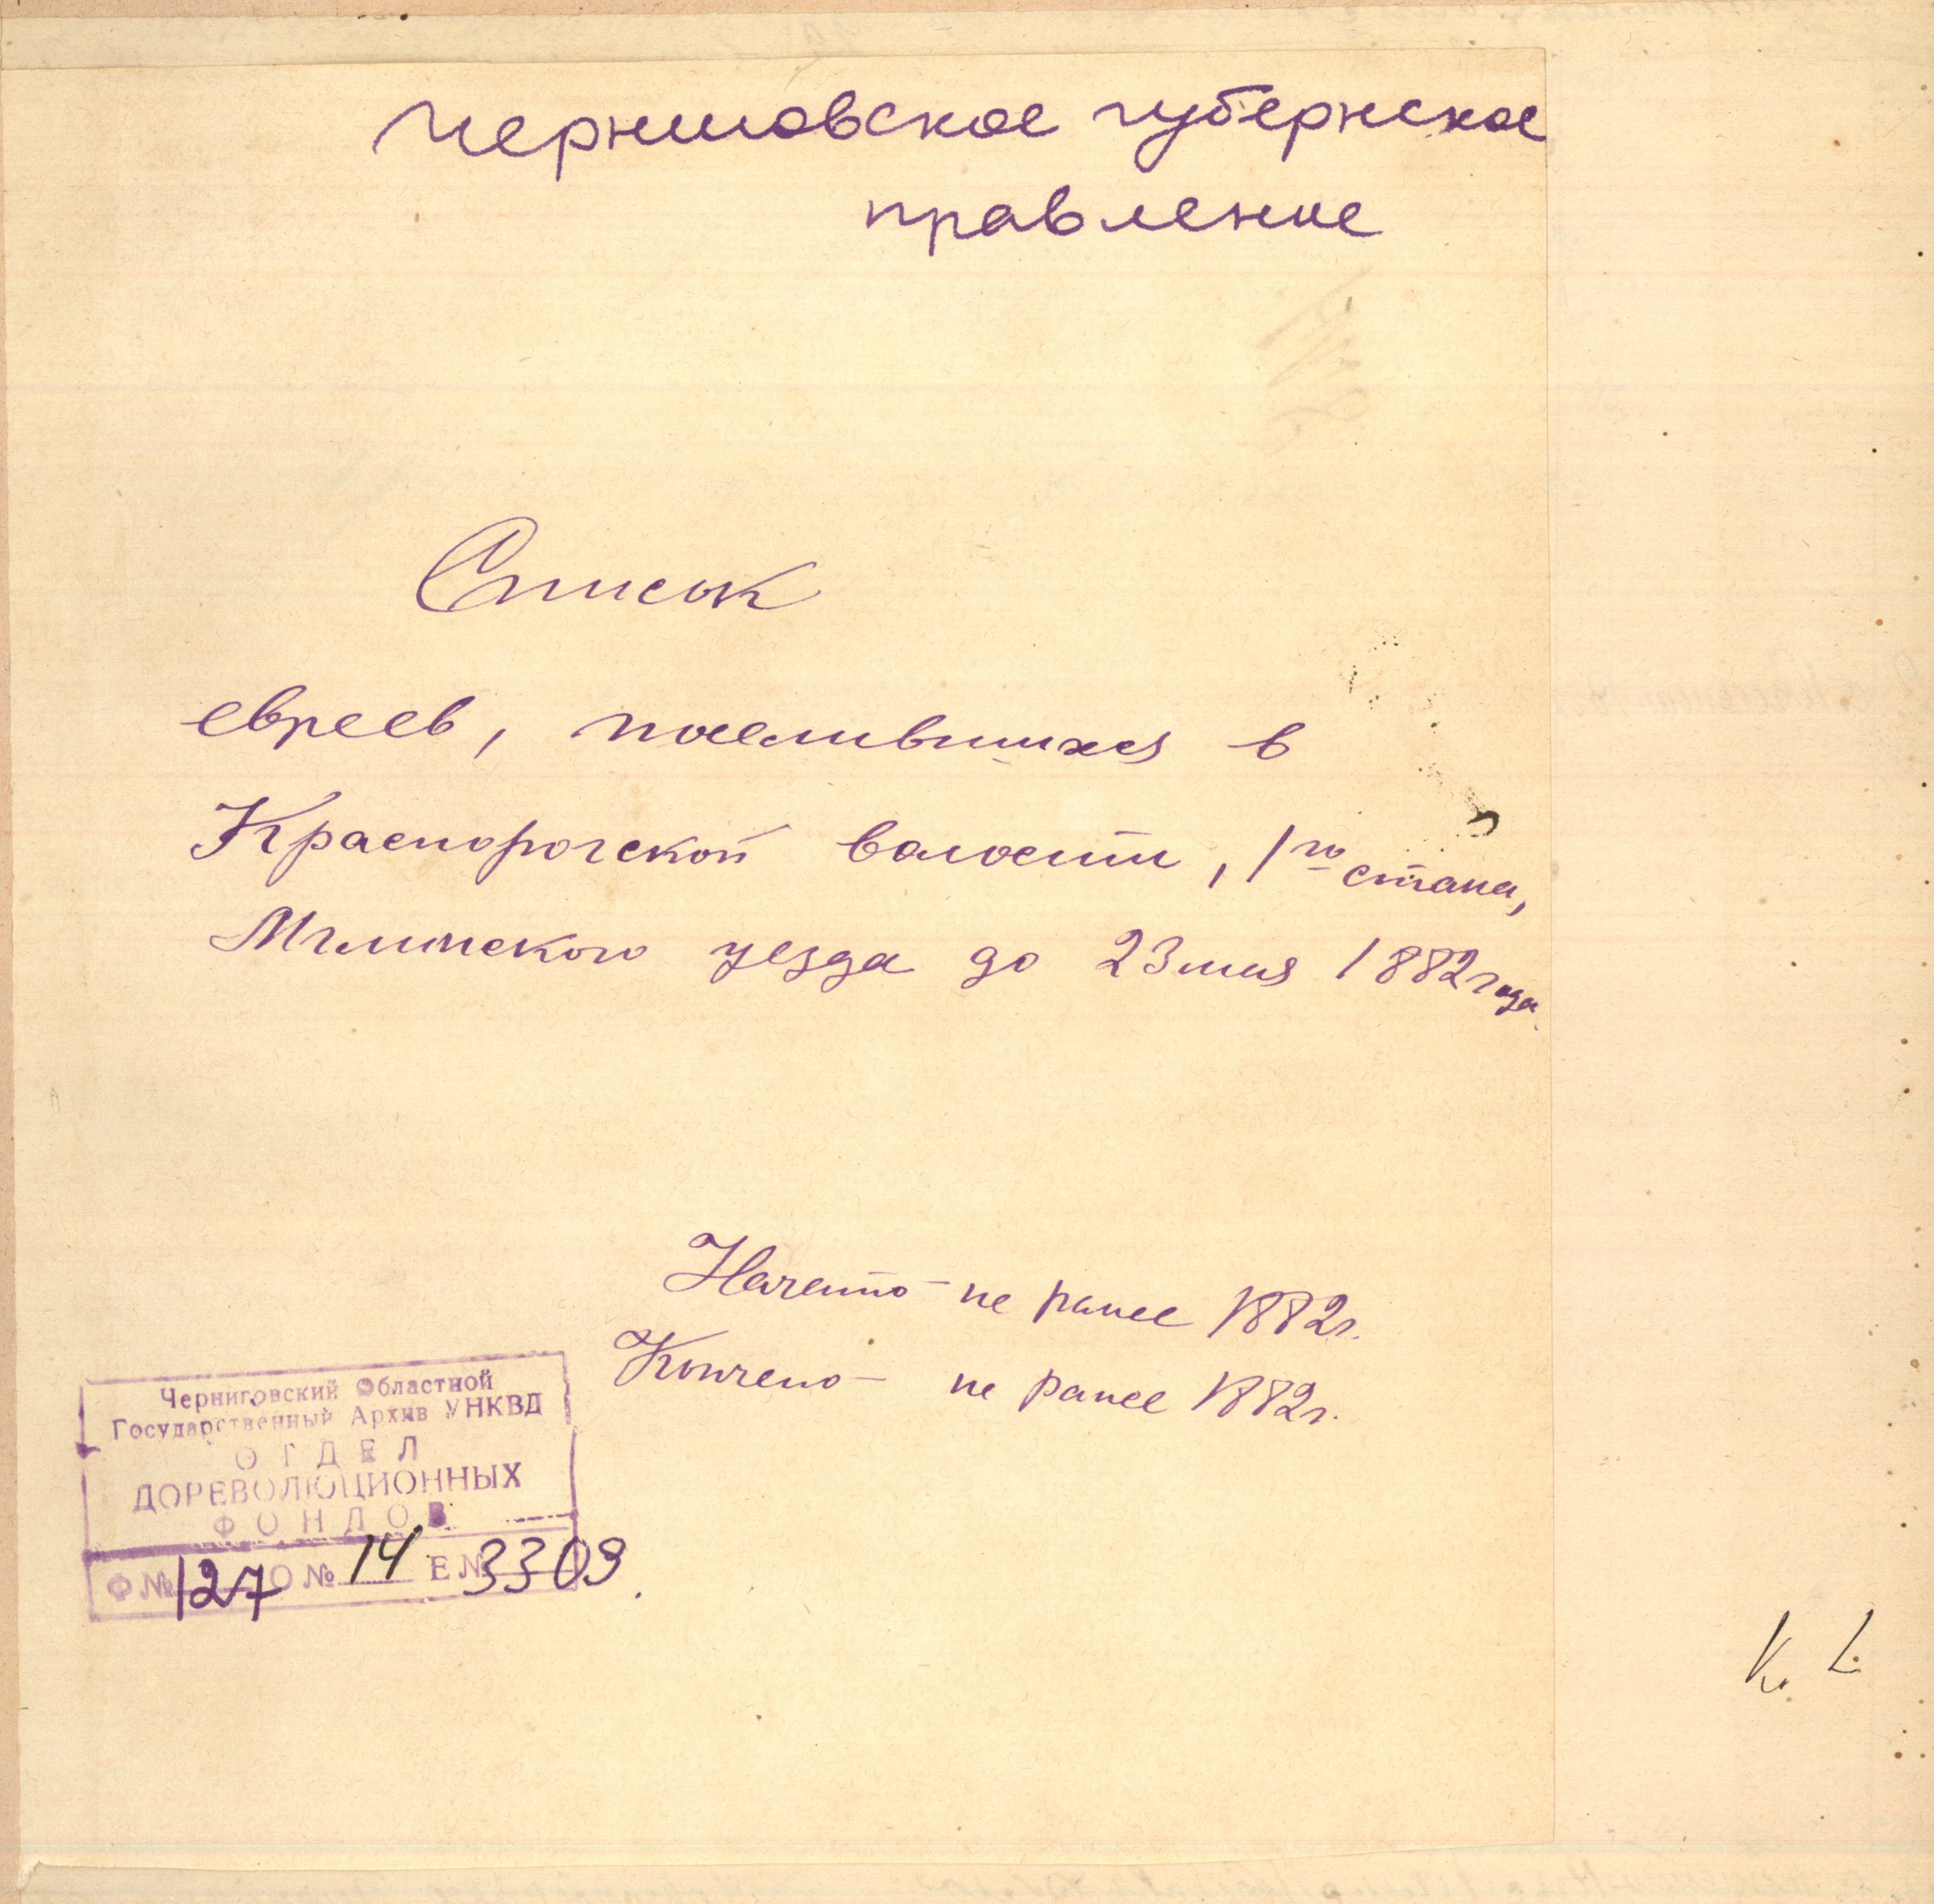 Черниговское губернское
правление
Список
евреев, поселившихся в
Краснорогской волости, 1го стана,
Мглинского уезда до 23 мая 1882 года
Начато - не ранее 1882 г.
Кончено - не ранее 1882 г.
Черниговский Областной
Государственный Архив УНКВД
ОТДЕЛ
ДОРЕВОЛЮЦИОННЫХ
ФОНДОВ
Ф № 127 О № 14 Е № 3309.